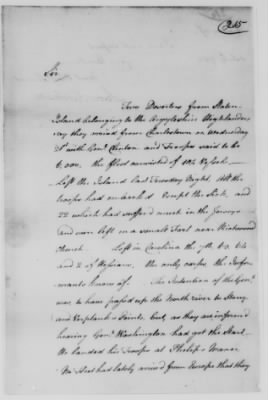 215
Sir
Two Deserters from Staten
Island belonging to the Argyleshire Highlanders
say they arrived from Charlestown on Wednesday
with Genl. Clinton and Troops said to be
6,000. the fleet consisted of 104 Vessels.
Left the Island last Tuesday Night. All the
Troops had embark'd except the Sick, and
22 which had suffered much in the
and were left in a small Fort near
Church. Left in Carolina the 7th, 63, 64
and 2 of Hessians, the only corps the Infor-
mants know of. The Intention of the Genl.
was to have passed up the North river to Stony
and Verplank's Points, but, as they are informed
hearing Genl. Washington had got the Start
he landed his Troops at Philips's Manor.
No Fleet had lately arrived from Europe that they